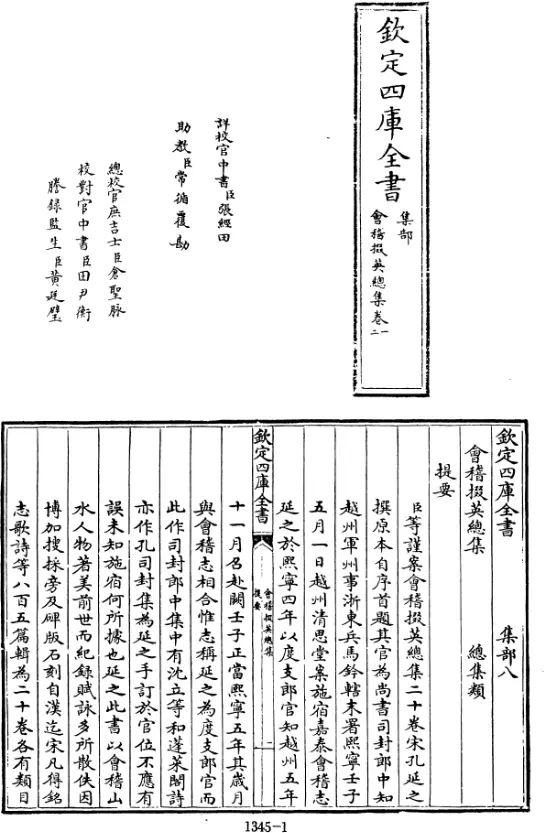 欽定四庫全書
集部
會稽掇英總集卷一二
詳校官中書臣張經田
助教臣常循覆勘
總校官庶吉士臣倉聖脉
校對官中書臣田尹衡
謄錄監生臣黄廷璧
欽定四庫全書 集部八
會稽掇英總集 總集類
提要
臣等謹案會稽掇英總集二十卷宋孔延之
撰原本自序首題其官為尚書司封郎中知
越州軍州事浙東兵馬鈐轄末署熙寧壬子
五月一日越州清思堂案施宿嘉泰會稽志
延之於熙寧四年以度支郎官知越州五年
欽定四庫全書
會稽掇英總集
提要
一
十一月召赴闕壬子正當熙寧五年其歲月
與會稽志相合惟志稱延之為度支郎官而
此作司封郎中集中有沈立等和蓬萊閣詩
亦作孔司封集為延之手訂於官位不應有
誤未知施宿何所據也延之此書以會稽山
水人物著美前世而紀錄賦詠多所散佚因
博加搜採旁及碑版石刻自漢迄宋凡得銘
志歌詩等八百五篇輯為二十卷各有類目
1345-1